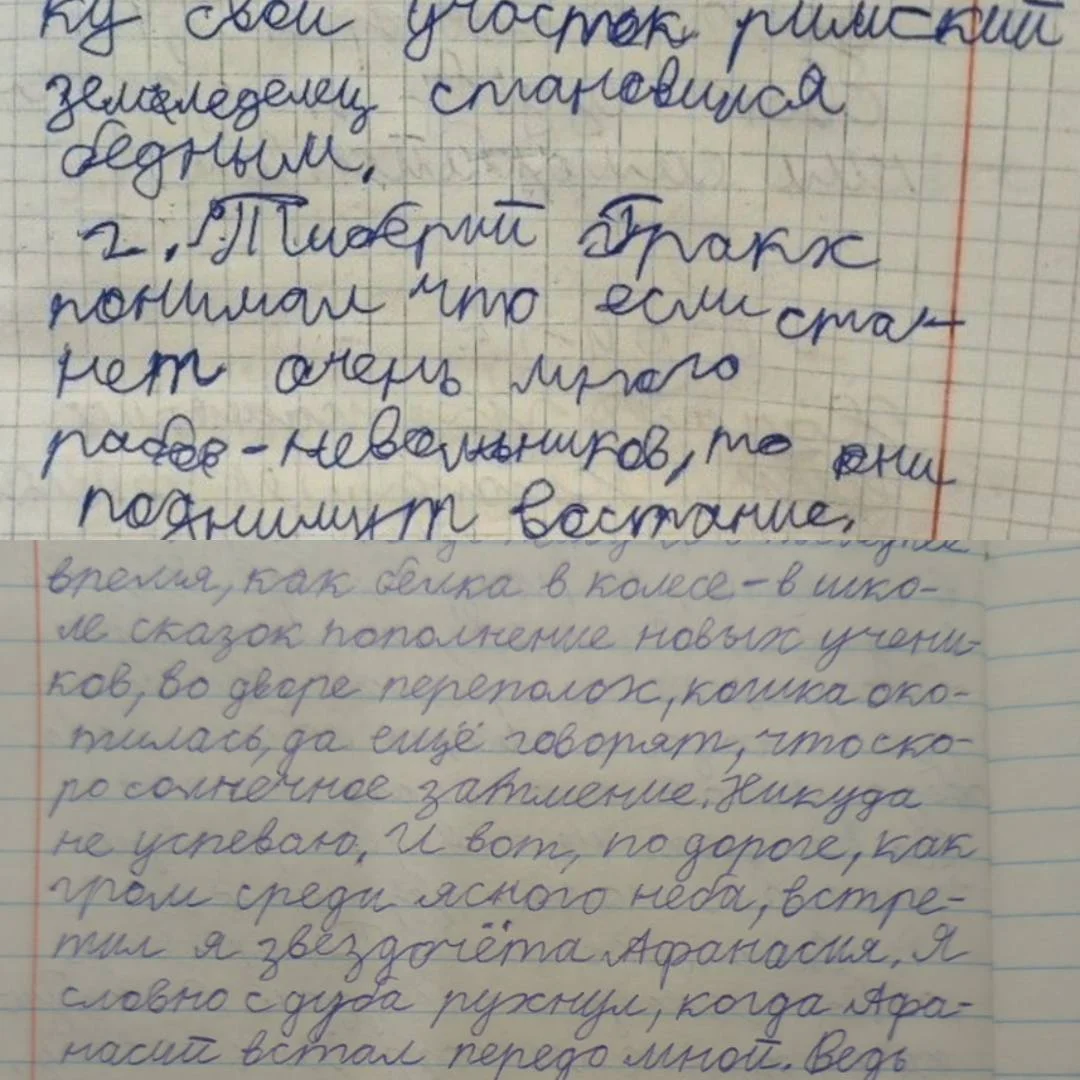 ку свой участок римский
земледелец становился
бедным.
2. Тиберий Гракх
понимал что если ста-
нет очень много
рабов-невольников, то они
поднимут востание.
время, как белка в колесе – в шко-
ле сказок пополнение новых учени-
ков, во дворе переполох, кошка око-
тилась, да ещё говорят, что ско-
ро солнечное затмение. Никуда
не успеваю. И вот, по дороге, как
гром среди ясного неба, встре-
тил я звездочёта Афанасия. Я
словно с дуба рухнул, когда Афа-
насий встал передо мной. Ведь